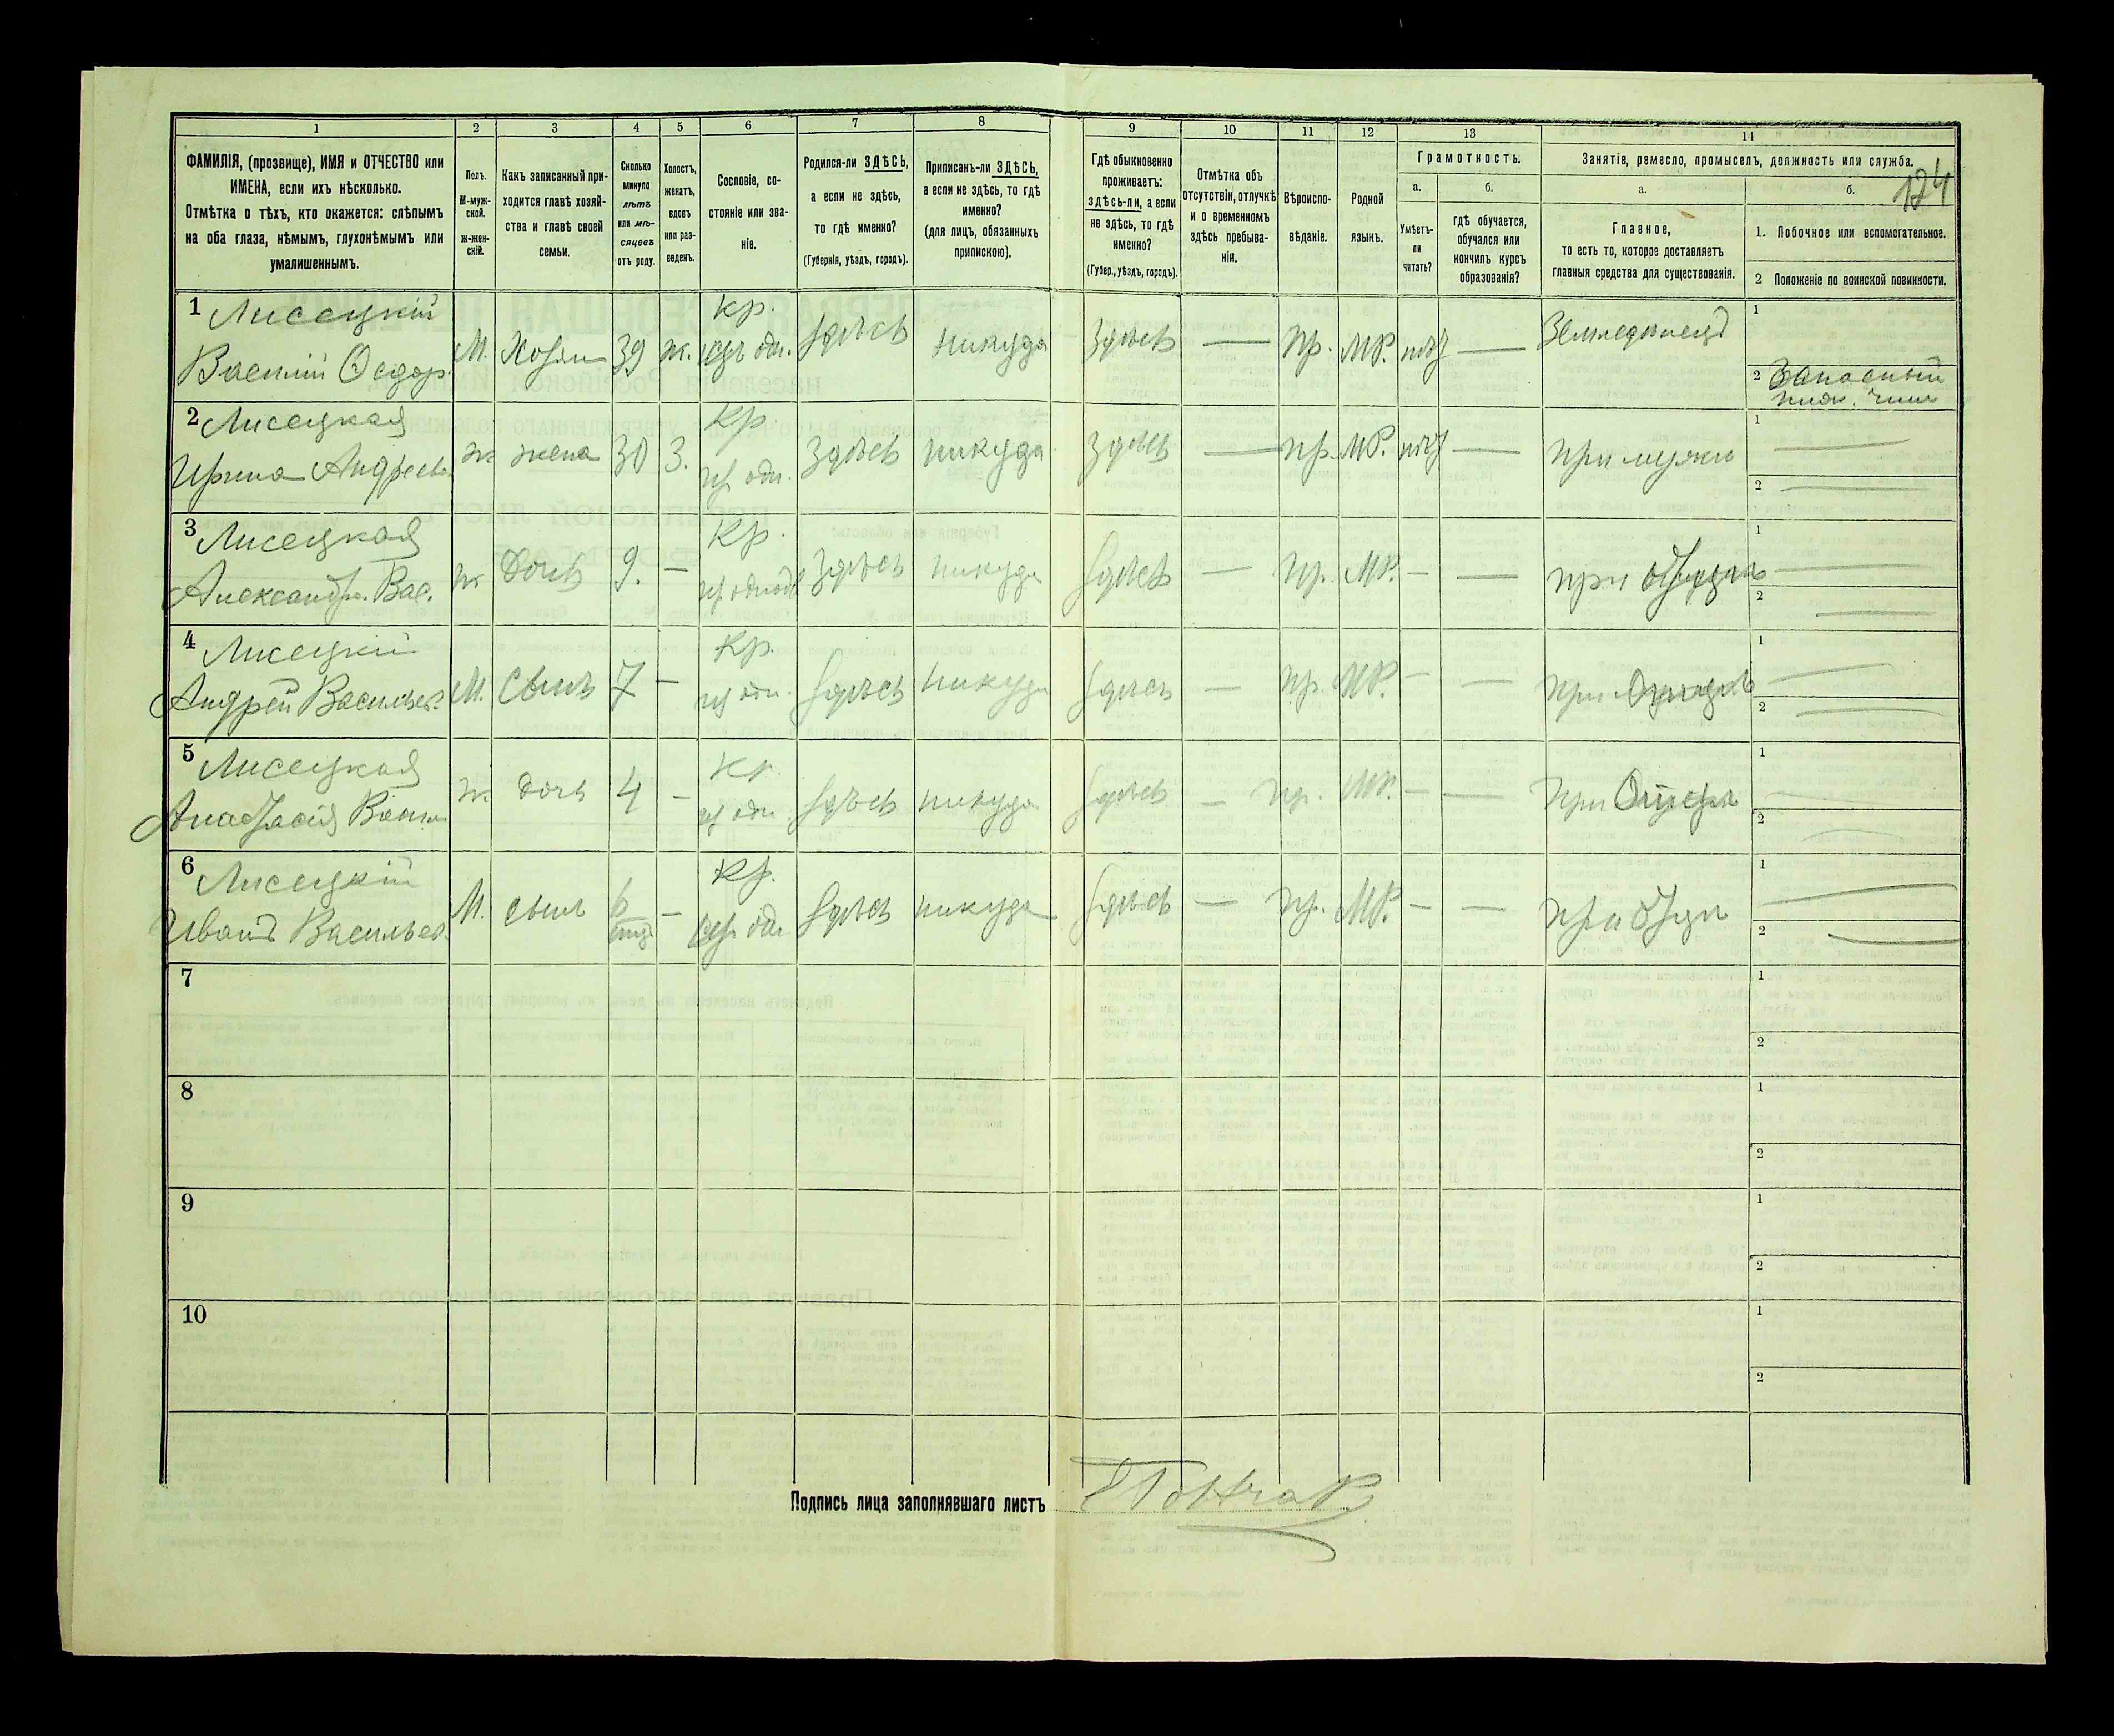 1 2 3 4 5 6 7 8 9 10 11 12 13 14
124
ФАМИЛІЯ, (прозвище), ИМЯ и ОТЧЕСТВО или
ИМЕНА, если ихъ нѣсколько.
Отмѣтка о тѣхъ, кто окажется: слѣпымъ
на оба глаза, нѣмымъ, глухонѣмымъ или
умалишеннымъ.
Полъ.
М-муж-
ской.
ж-жен-
скій.
Какъ записанный при-
ходится главѣ хозяй-
ства и главѣ своей
семьи.
Сколько
минуло
лѣтъ
или мѣ-
сяцевъ
отъ роду.
Холостъ,
женатъ,
вдовъ
или раз-
веденъ.
Сословіе, со-
стояніе или зва-
ніе.
Родился-ли ЗДѢСЬ,
а если не здѣсь,
то гдѣ именно?
(Губернія, уѣздъ, городъ).
Приписанъ-ли ЗДѢСЬ,
а если не здѣсь, то гдѣ
именно?
(для лицъ, обязанныхъ
припискою).
Гдѣ обыкновенно
проживаетъ:
ЗДѢСЬ-ли, а если
не здѣсь, то гдѣ
именно?
(Губер., уѣздъ, городъ).
Отмѣтка объ
отсутствіи, отлучкѣ
и о временномъ
здѣсь пребыва-
ніи.
Вѣроиспо-
вѣданіе.
Родной
языкъ.
Грамотность.
а.
Умѣетъ-
ли
читать?
б.
гдѣ обучается,
обучался или
кончилъ курсъ
образованія?
Занятіе, ремесло, промыселъ, должность или служба.
а.
Главное,
то есть то, которое доставляетъ
главныя средства для существованія.
б.
1. Побочное или вспомогательное.
2 Положеніе по воинской повинности.
1 Лисецкій
Василій Ѳедор.
М. Хозяи 39 ж. кр. здѣсь никуда здѣсь — пр. МР. — Земледѣлецъ
1
2 Запасный
нижн. чинъ
2 Лисецкая
Ирина Андреева
ж жена 30 З. кр. здѣсь никуда здѣсь — пр. МР. — при мужѣ
1 —
2 —
3 Лисецкая
Александра Вас.
ж дочь 9. — кр. здѣсь никуда здѣсь — пр. МР. — — при
1 —
2 —
4 Лисецкій
Андрей Васильев.
М. сынъ 7 — кр. здѣсь никуда здѣсь — пр. МР. — — при
1 —
2 —
5 Лисецкая
Анастасія
ж. дочь 4 — кр. здѣсь никуда здѣсь — пр. МР. — — при
1 —
2 —
6 Лисецкій
Иванъ Васильев.
М. сынъ 6 — кр. здѣсь никуда здѣсь — пр. МР. — — при
1 —
2 —
7 1
2
8 1
2
9 1
2
10 1
2
Подпись лица заполнявшаго листъ